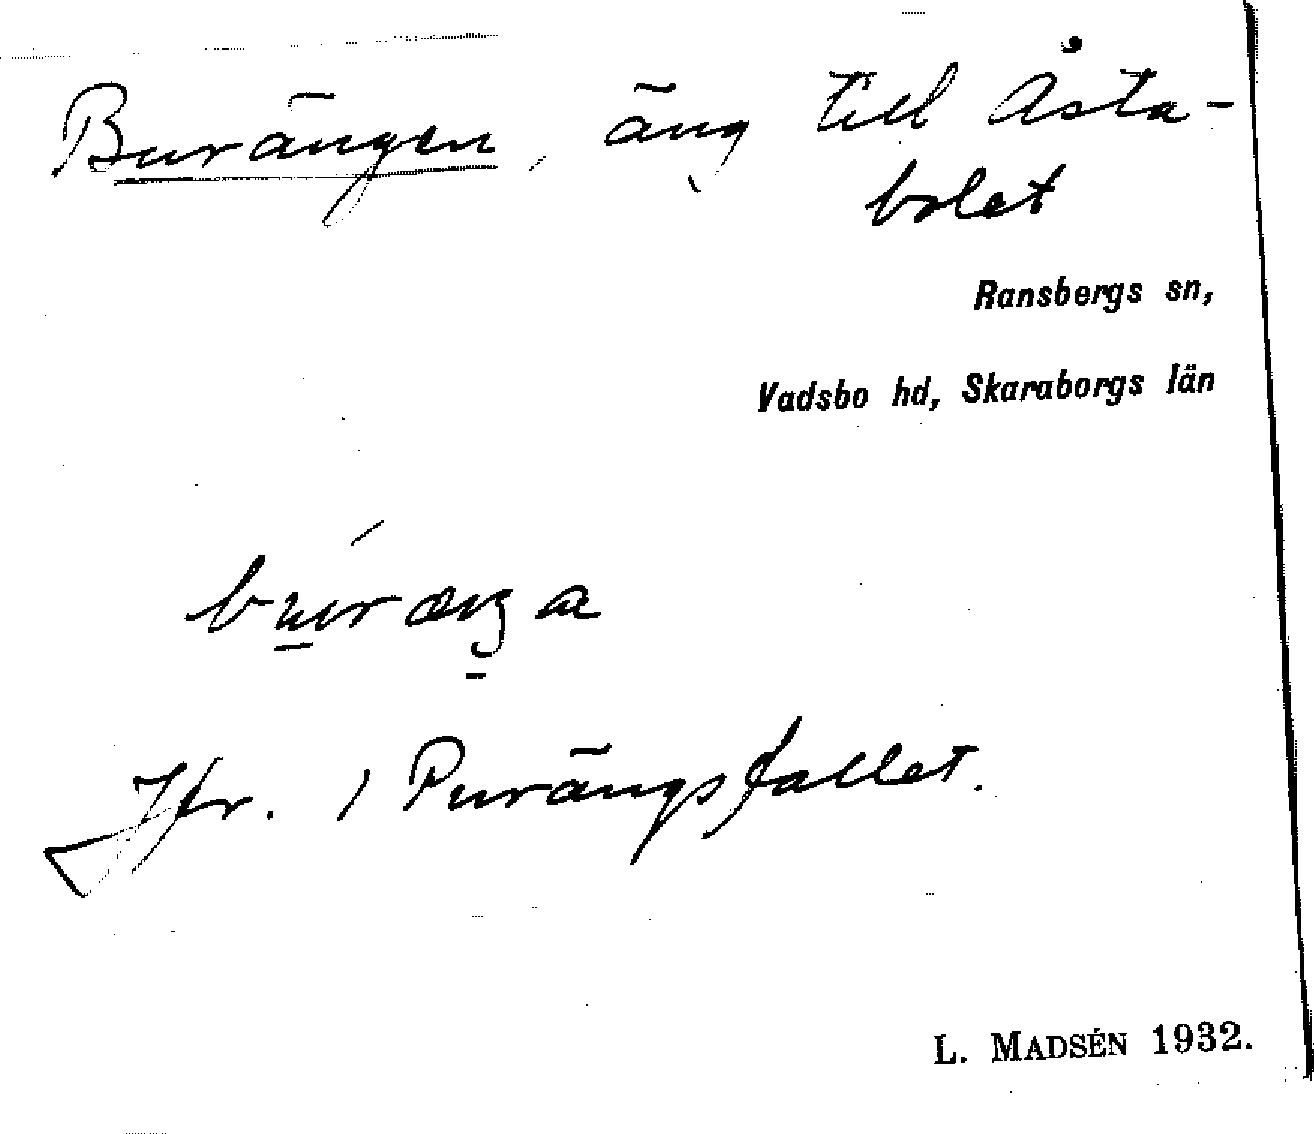 Burängen, äng till Åsta-
bolet
Ransbergs sn,
Vadsbo hd, Skaraborgs län
Jfr. 1 Purängsfallet.
L. MADSÉN 1932.